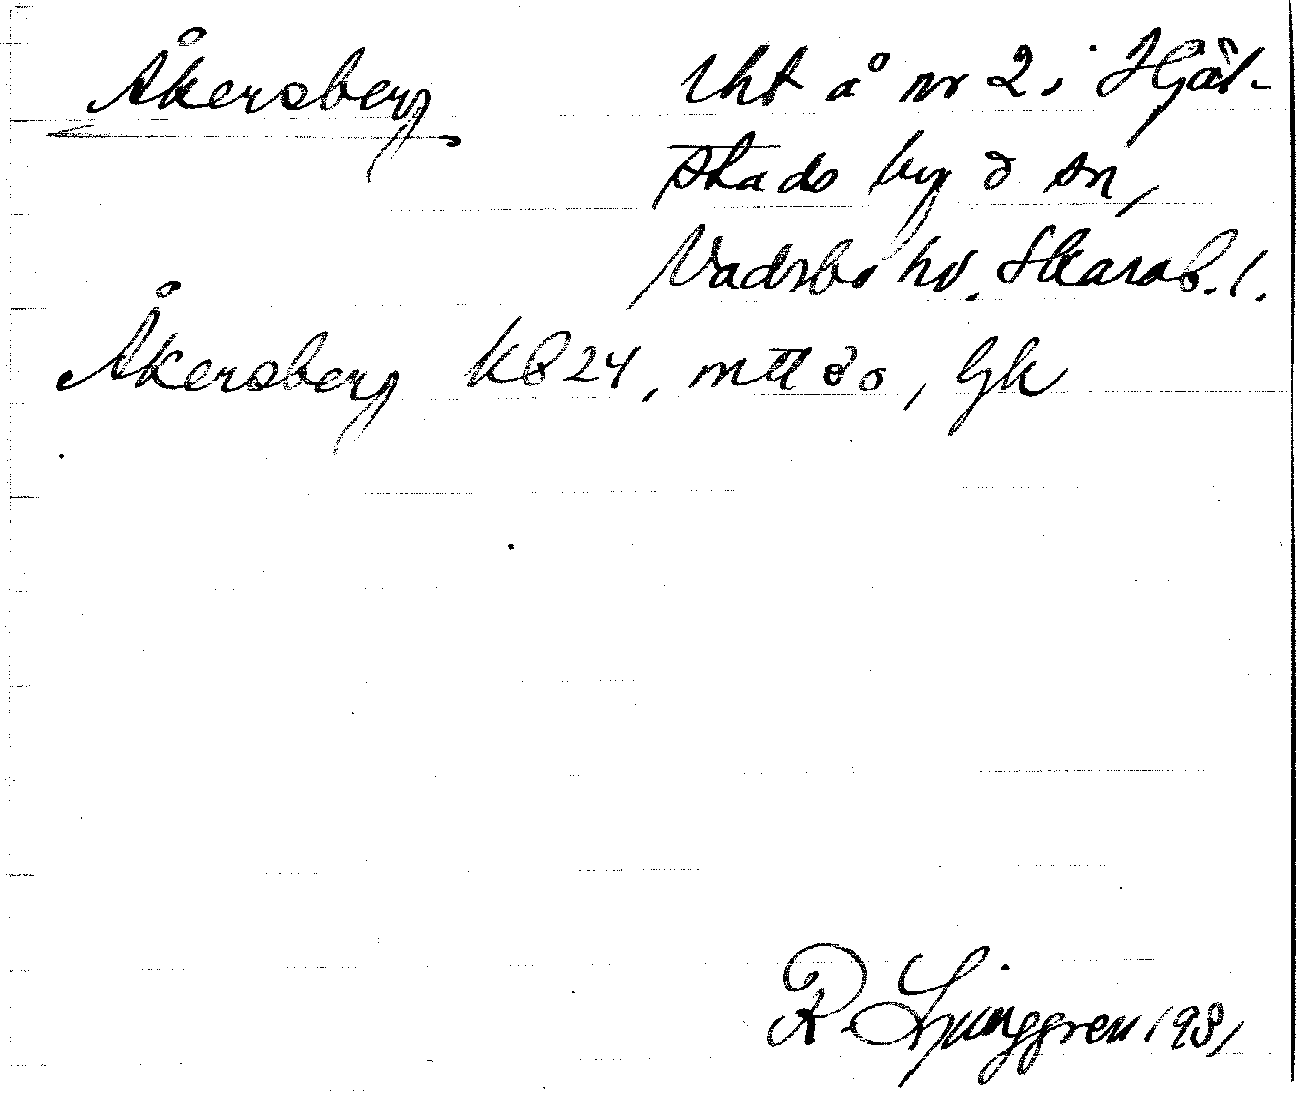 Åkersberg
tht å nr 2 i Hjäl-
stads by o sn,
Vadsbo hd. Skarab. l.
Åkersberg K824, mtl o o, Gk
R. Ljunggren 1981